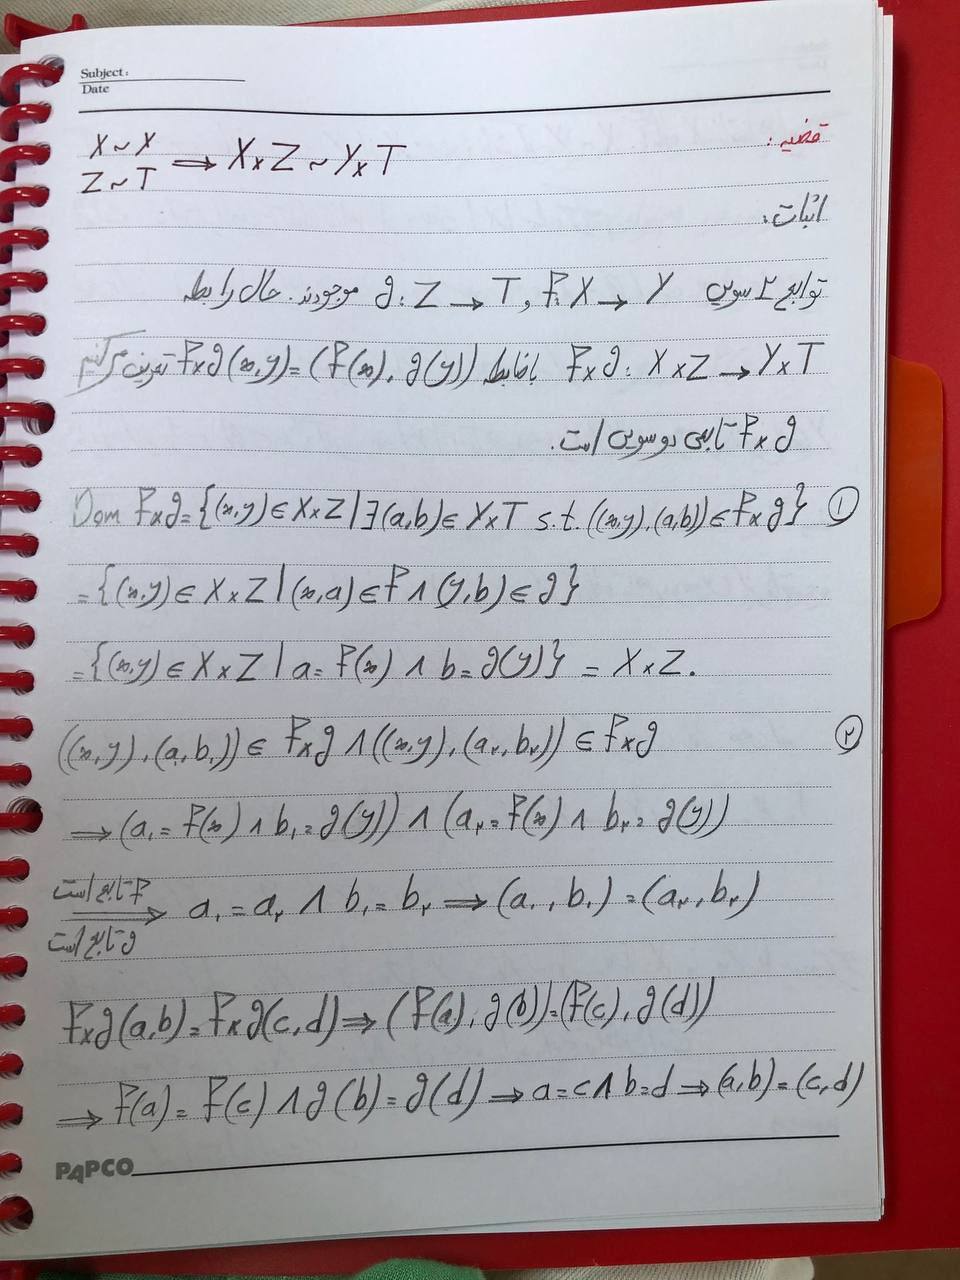 Subject:
Date
قضیه:
X ~ X
Z ~ T ⟹ X×Z ~ Y×T
اثبات:
توابع ۲ سویی f: X → Y , g: Z → T موجودند. حال رابطه
f×g: X×Z → Y×T با ضابطه f×g(x,y)=(f(x), g(y)) تعریف می‌کنیم
f×g تابعی دوسویی است.
Dom f×g = {(x,y) ∈ X×Z | ∃(a,b) ∈ Y×T s.t. ((x,y),(a,b)) ∈ f×g} ①
= {(x,y) ∈ X×Z | (x,a) ∈ f ∧ (y,b) ∈ g}
= {(x,y) ∈ X×Z | a = f(x) ∧ b = g(y)} = X×Z.
((x,y),(a₁,b₁)) ∈ f×g ∧ ((x,y),(a₂,b₂)) ∈ f×g ②
⟹ (a₁ = f(x) ∧ b₁ = g(y)) ∧ (a₂ = f(x) ∧ b₂ = g(y))
f تابع است
⟹ a₁ = a₂ ∧ b₁ = b₂ ⟹ (a₁, b₁) = (a₂, b₂)
g تابع است
f×g(a,b) = f×g(c,d) ⟹ (f(a), g(b)) = (f(c), g(d))
⟹ f(a) = f(c) ∧ g(b) = g(d) ⟹ a = c ∧ b = d ⟹ (a,b) = (c,d)
PAPCO